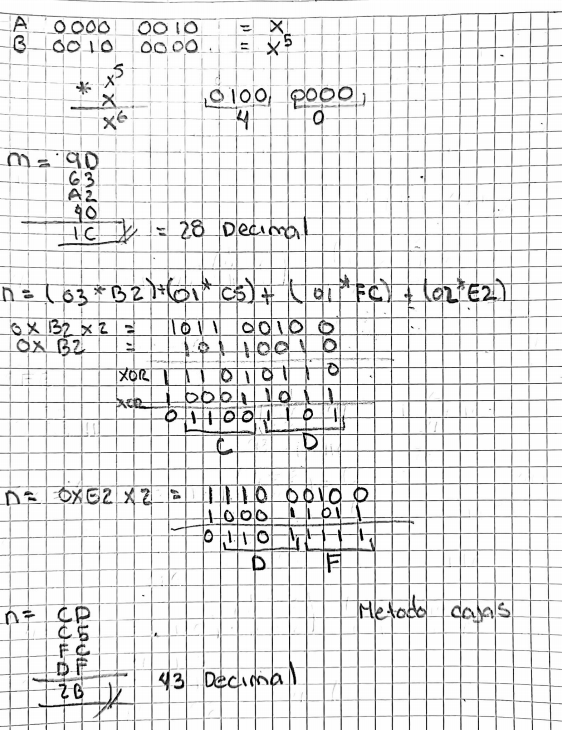 A 0000 0010 = x
B 0010 0000 = x^5
* x^5
x
x^6
0100 0000
4 0
m = 9D
63
A2
40
1C // = 28 Decimal
n = (03 * B2) + (01 * C5) + (01 * FC) + (02 * E2)
0x B2 x 2 = 1011 00100
0x B2 = 10110010
XOR 1 1101 0110
XOR 1 0001 1011
0 1100 1101
C D
n = 0xE2 x 2 = 1110 00100
1000 11011
0 1101 1111
D F
n = CD
C5
FC
DF
2B // 43 Decimal
Metodo cajas